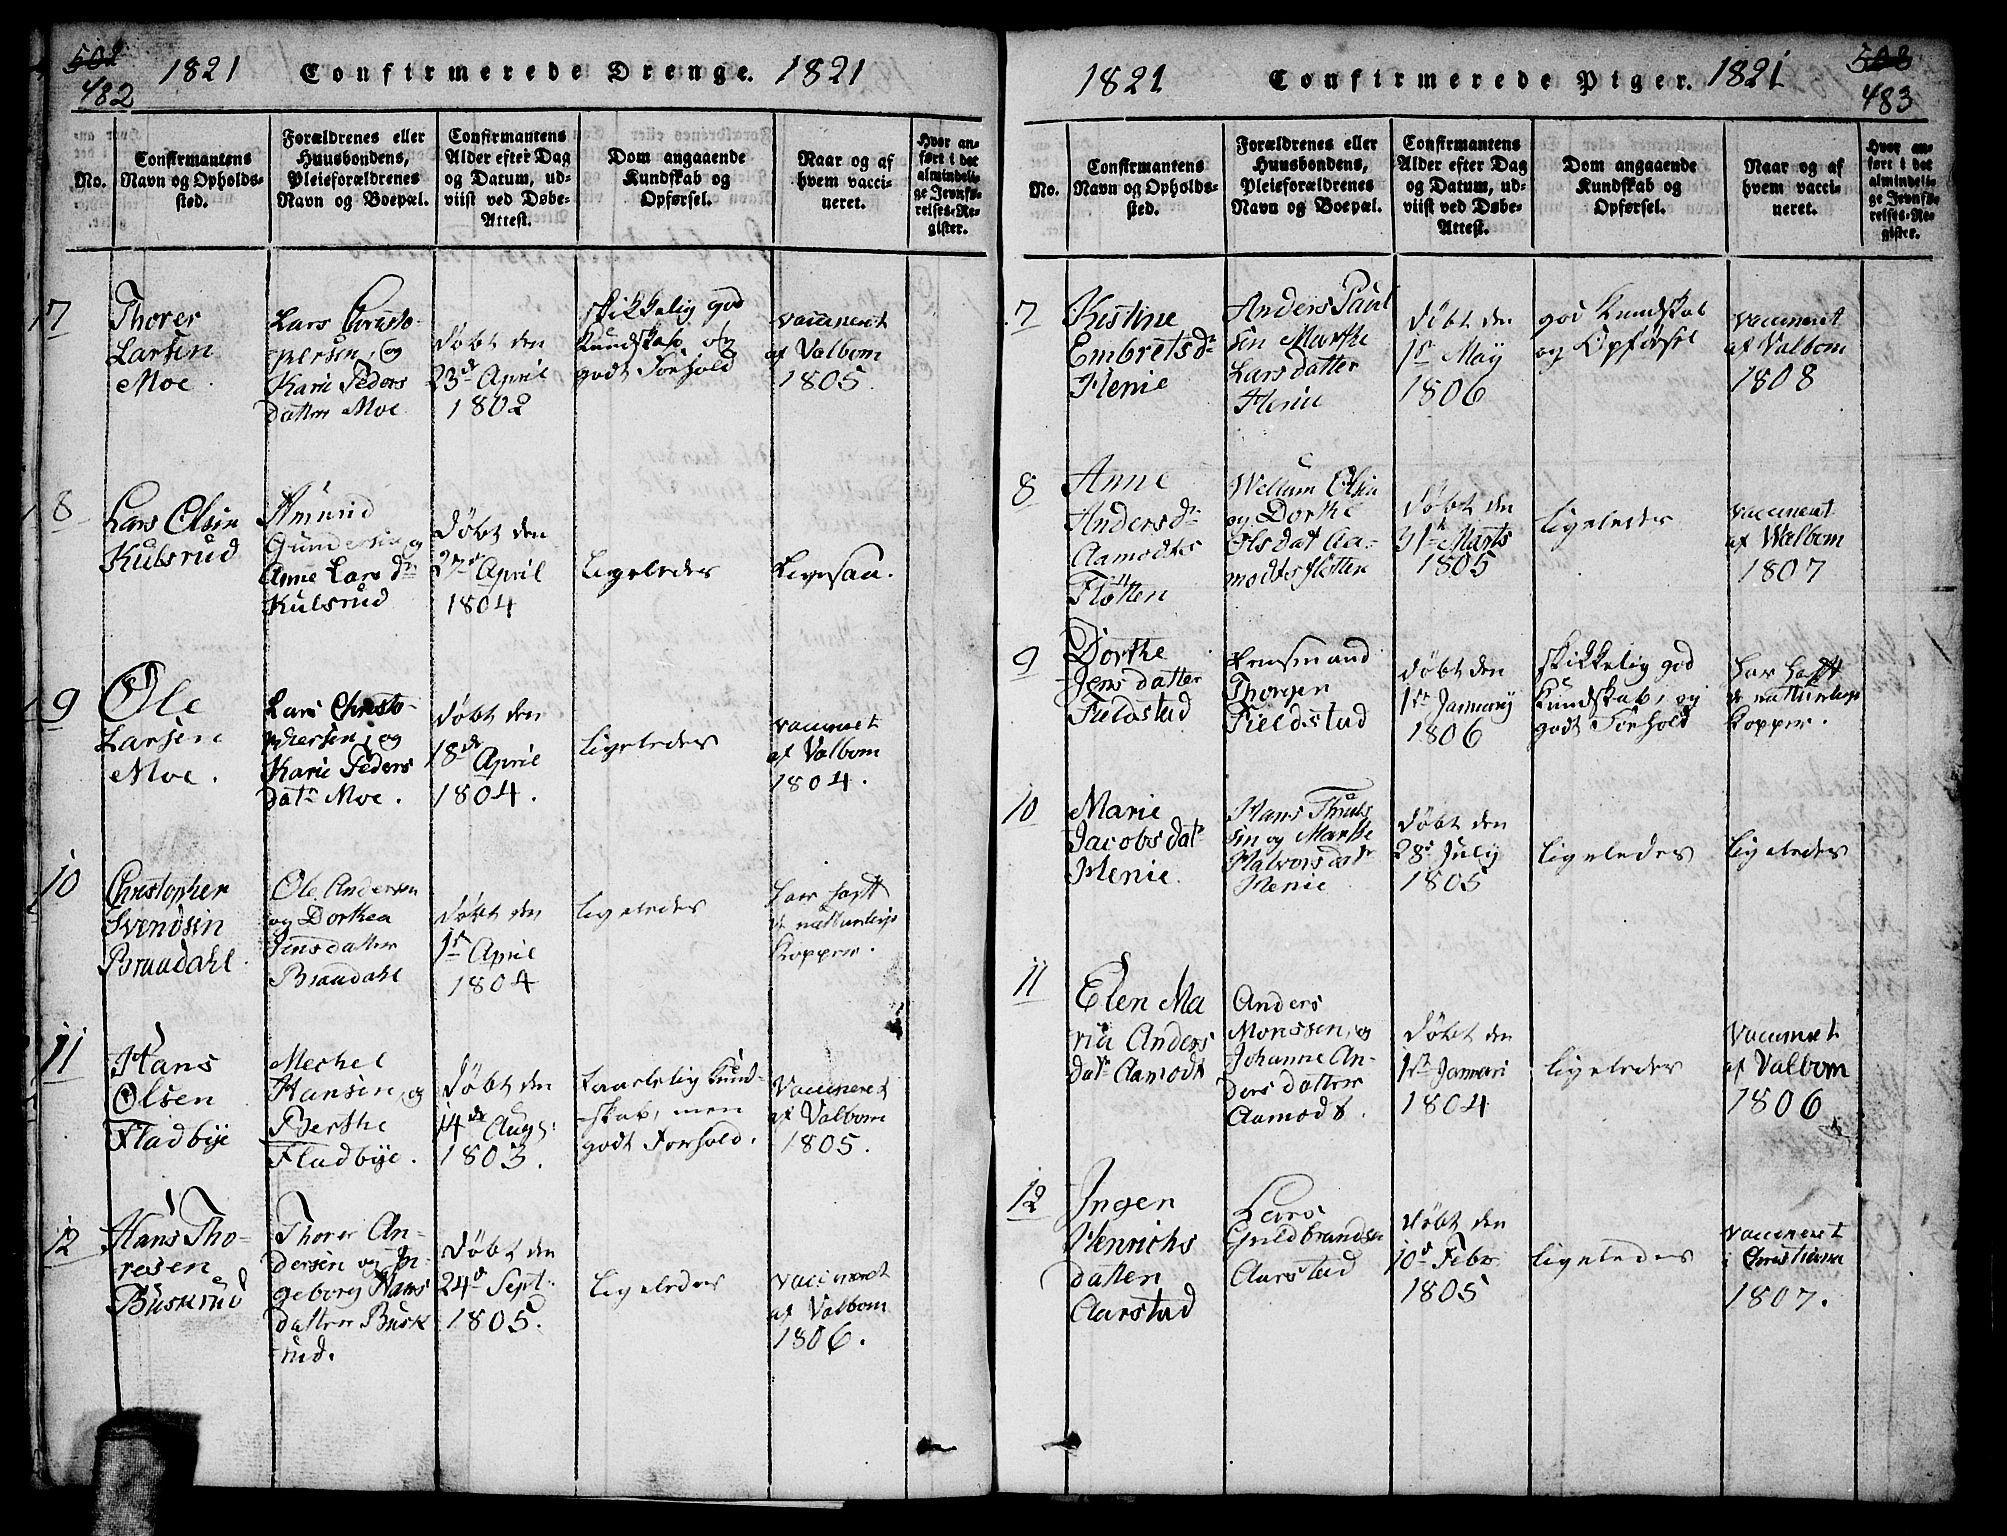 502
482
1821 Confirmerede Drenge. 1821
No.
Confirmantens
Navn og Opholds-
sted.
Forældrenes eller
Huusbondens,
Pleieforældrenes
Navn og Boepæl.
Confirmantens
Alder efter Dag
og Datum, ud-
viist ved Døbe-
Attest.
Dom angaaende
Kundskab og
Opførsel.
Naar og af
hvem vacci-
neret.
Hvor an-
ført i det
almindeli-
ge Jevnfø-
relses-Re-
gister.
7
Thorer
Larsen
Moe
Lars Christo-
phersen, og
Karie Peders
datter Moe
døbt den
23de April
1802
skikkelig god
Kundskab og
godt Forhold
vaccineret
af Valbom
1805.
8
Lars Olsen
Kulsrud
Amund
Gundersen og
Anne Lars dr
Kulsrud
døbt den
27de April
1804
ligeledes
ligesaa.
9
Ole
Larsen
Moe.
Lars Christo-
phersen, og
Karie Peders
datr Moe.
døbt den
18de April
1804.
ligeledes
vaccineret
af Valbom
1804.
10
Christopher
Svendsen
Braadahl
Ole Andersen
og Dorthea
Jensdatter
Braadahl
døbt den
1ste April
1804
ligeledes
har haft
de naturlige
Kopper.
11
Hans
Olsen
Fladbye
Mechel
Hansen, og
Berthe
Fladbye.
døbt den
14de Augs:
1803.
taalelig Kund-
skab, men
godt Forhold.
Vaccineret
af Valbom
1805.
12
Hans Tho-
resen
Buskrud
Thorer An-
dersen og In-
geborg Hans
datter Busk
rud.
døbt den
24de Sept:
1805.
ligeledes
vaccineret
af Valbom
1806.
503
483
1821 Confirmerede Piger. 1821
No.
Confirmantens
Navn og Opholds-
sted.
Forældrenes eller
Huusbondens,
Pleieforældrenes
Navn og Boepæl.
Confirmantens
Alder efter Dag
og Datum, ud-
viist ved Døbe-
Attest.
Dom angaaende
Kundskab og
Opførsel.
Naar og af
hvem vacci-
neret.
Hvor an-
ført i det
almindeli-
ge Jevnfø-
relses-Re-
gister.
7
Kistine
Embrets dr
Henie
Anders Paul
sen Marthe
Lars datter
Henie
døbt den
1ste May
1806
god Kundskab
og Opførsel
vaccineret
af Valbom
1808
8
Anne
Anders dr
Aamodts
Fløtten
Wellum Olsen
og Dorthe
Olsdat Aa-
modts fløtten
døbt den
31te Marts
1805
ligeledes
vaccineret
af Walbom
1807
9
Dorthe
Jens datter
Fieldstad
Lensmand
Thorgen
Fieldstad
døbt den
1ste January
1806
skikkelig god
Kundskab, og
godt Forhold
har haft
de naturlige
Kopper.
10
Marie
Jacobs datr
Henie
Hans Thruls
sen og Marthe
Halvors datr
Henie
døbt den
28de July
1805
ligeledes
ligeledes
11
Elen Ma
ria Anders
datr Aamodt
Anders
Monssen, og
Johanne An-
ders datter
Aamodt.
døbt den
1ste Januari
1804
ligeledes
Vaccineret
af Valbom
1806
12
Ingen
Henrichs
datter
Aarstad
Lars
Guldbrandsen
Aarstad
døbt den
10de Febr
1805
ligeledes
vaccineret
i Christiania
1807.